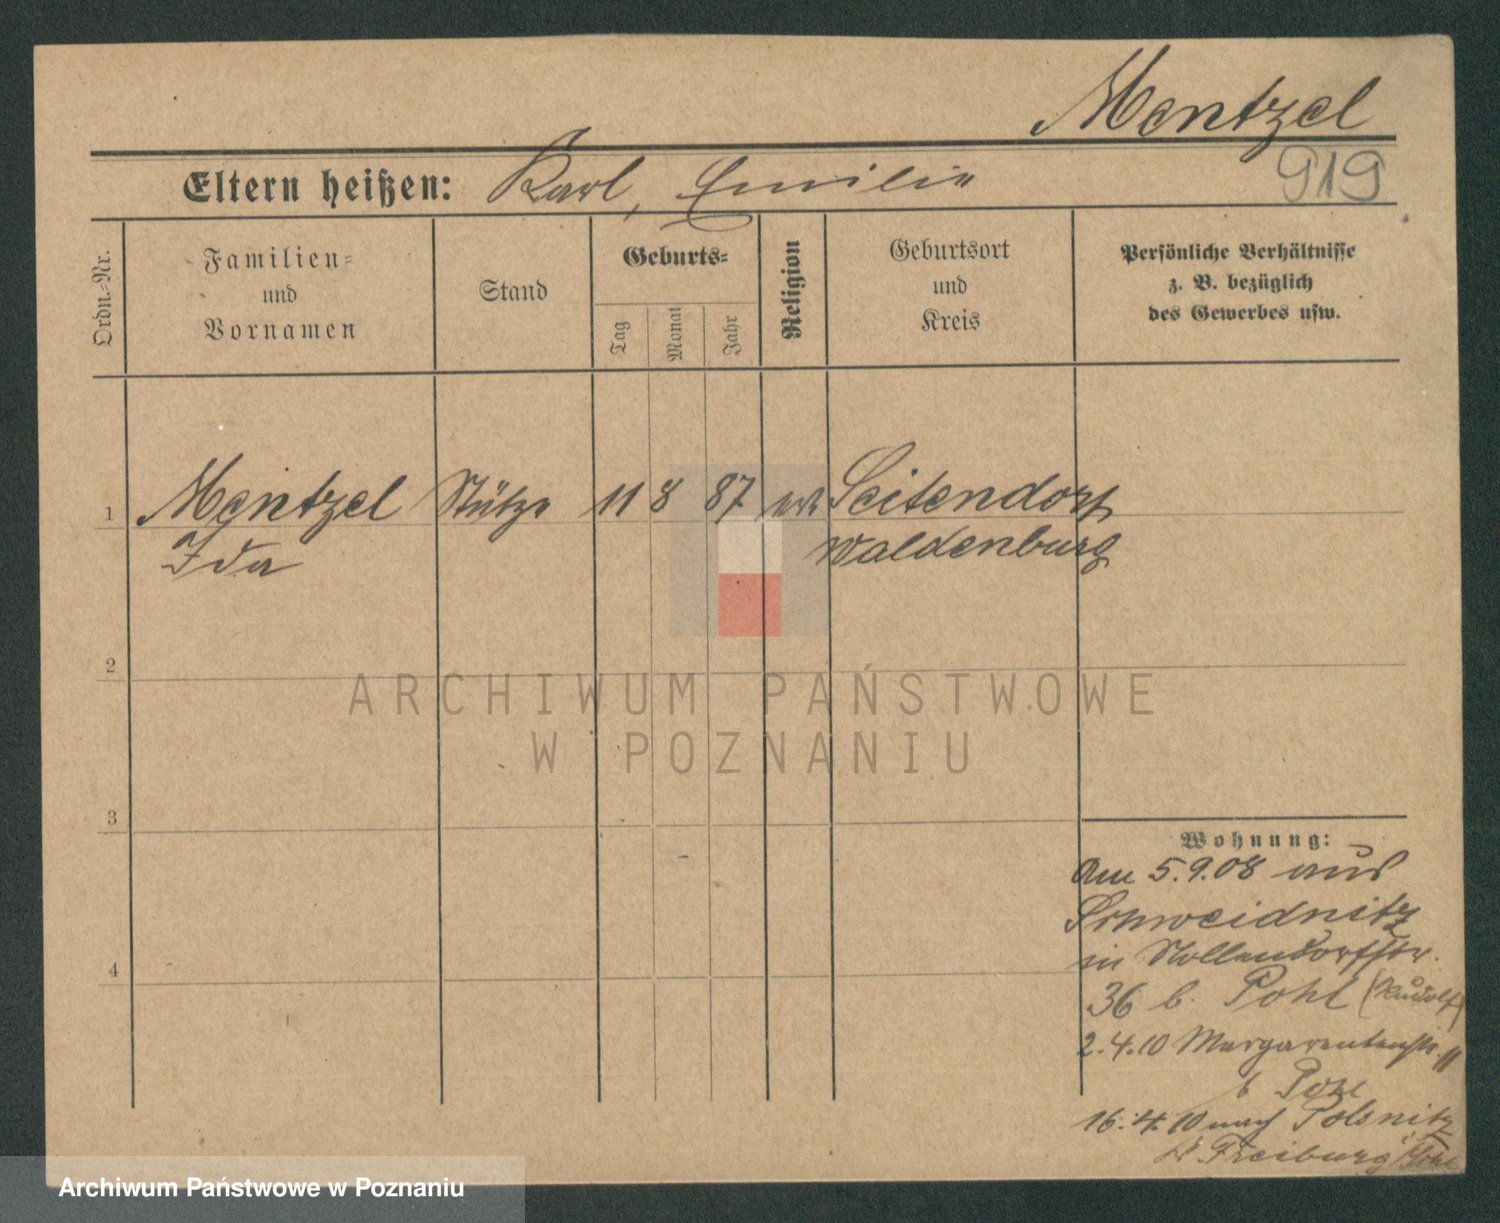 Mentzel
919
Eltern heißen: Karl, Emilie
Ordn.-Nr.
Familien-
und
Vornamen
Stand
Geburts-
Tag
Monat
Jahr
Religion
Geburtsort
und
Kreis
Persönliche Verhältnisse
z. B. bezüglich
des Gewerbes usw.
1 Mentzel Stütze 11 8 87 Seitendorf
Ida Waldenburg
2
ARCHIWUM PAŃSTWOWE
W POZNANIU
3
Wohnung:
Am 5.9.08 aus
Schweidnitz
in Nollendorfstr.
36 b. Pohl (Rudolf)
2.4.10 Margaretenstr. 11
b Pohl
16.4.10 nach Polsnitz
Freiburg
4
Archiwum Państwowe w Poznaniu